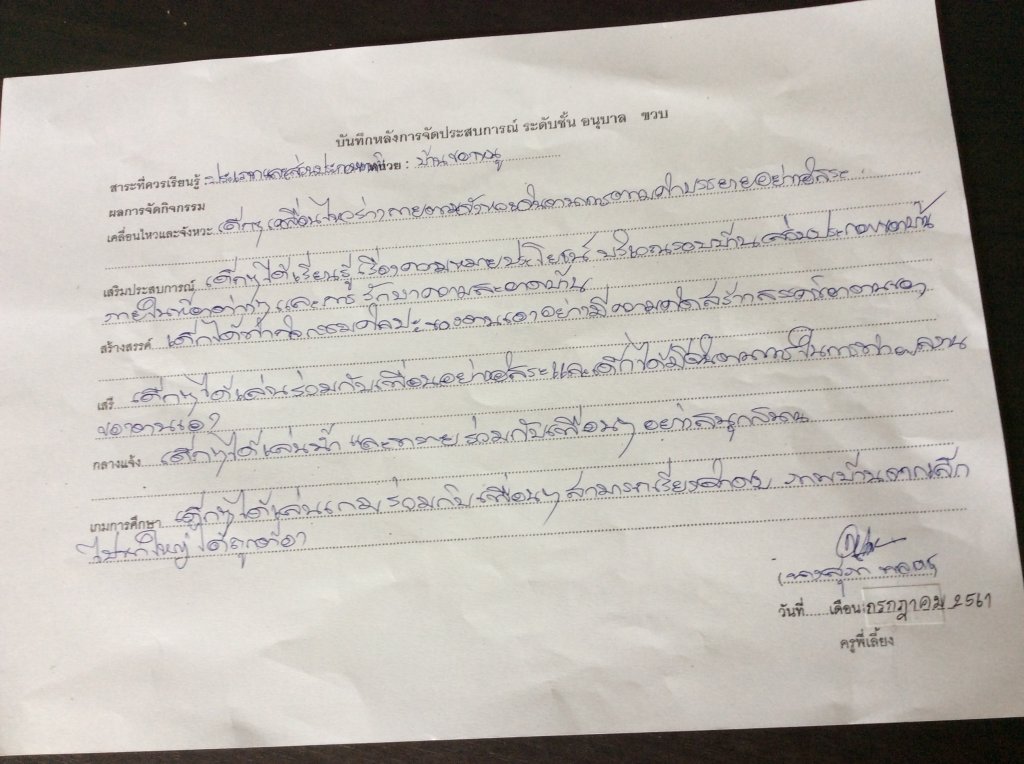 บันทึกหลังการจัดประสบการณ์ ระดับชั้น อนุบาล ขวบ
สาระที่ควรเรียนรู้ : ประเภทและส่วนประกอบ หน่วย : บ้านของหนู
ผลการจัดกิจกรรม
เคลื่อนไหวและจังหวะ เด็กๆ เคลื่อนไหวร่างกายตามจินตนาการตามคำบรรยายอย่างอิสระ
เสริมประสบการณ์ เด็กๆได้เรียนรู้ เรื่องความหมายประโยชน์ บริเวณรอบบ้าน ส่วนประกอบของบ้าน
ภายในห้องต่างๆ และการ รักษาความสะอาดบ้าน
สร้างสรรค์ เด็กได้ทำกิจกรรมศิลปะของตนเองอย่างมีความคิดสร้างสรรค์
เสรี เด็กๆได้เล่นร่วมกับเพื่อนอย่างอิสระและเด็กได้มีจินตนาการในการ
ของตนเอง
กลางแจ้ง เด็กๆได้เล่นน้ำ และทราย ร่วมกับเพื่อนๆ อย่างสนุกสนาน
เกมการศึกษา เด็กๆได้เล่นเกม ร่วมกับเพื่อนๆ สามารถเรียงลำดับ ภาพบ้านจากเล็ก
ไปหาใหญ่ ได้ถูกต้อง
วันที่......เดือน กรกฎาคม 2561
ครูพี่เลี้ยง